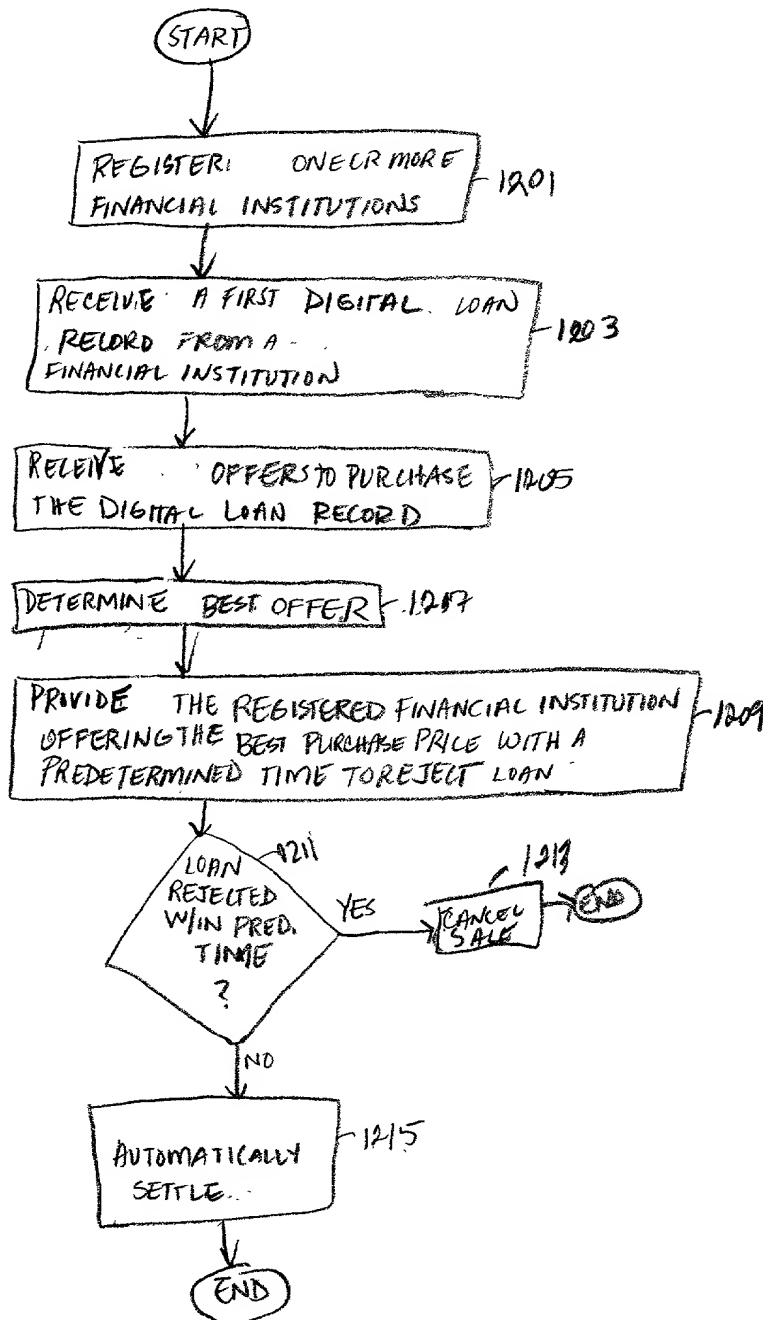 START
REGISTER ONE OR MORE
FINANCIAL INSTITUTIONS
1201
RECEIVE A FIRST DIGITAL LOAN
RECORD FROM A
FINANCIAL INSTITUTION
1203
RECEIVE OFFERS TO PURCHASE
THE DIGITAL LOAN RECORD
1205
DETERMINE BEST OFFER
1207
PROVIDE THE REGISTERED FINANCIAL INSTITUTION
OFFERING THE BEST PURCHASE PRICE WITH A
PREDETERMINED TIME TO REJECT LOAN
1209
LOAN
REJECTED
W/IN PRED.
TIME
?
1211
YES
1213
CANCEL
SALE
END
NO
AUTOMATICALLY
SETTLE...
1215
END